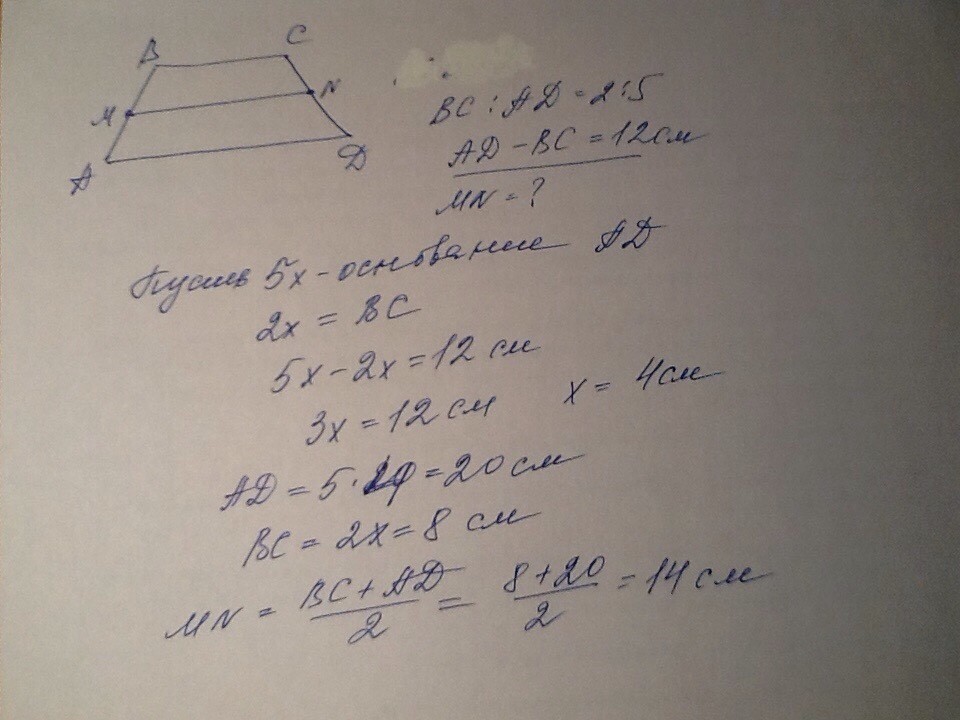 B C
M N
A D
BC : AD = 2:5
AD - BC = 12 см
MN = ?
Пусть 5x - основание AD
2x = BC
5x - 2x = 12 см
3x = 12 см x = 4 см
AD = 5 · 4 = 20 см
BC = 2x = 8 см
MN = \frac{BC + AD}{2} = \frac{8 + 20}{2} = 14 см